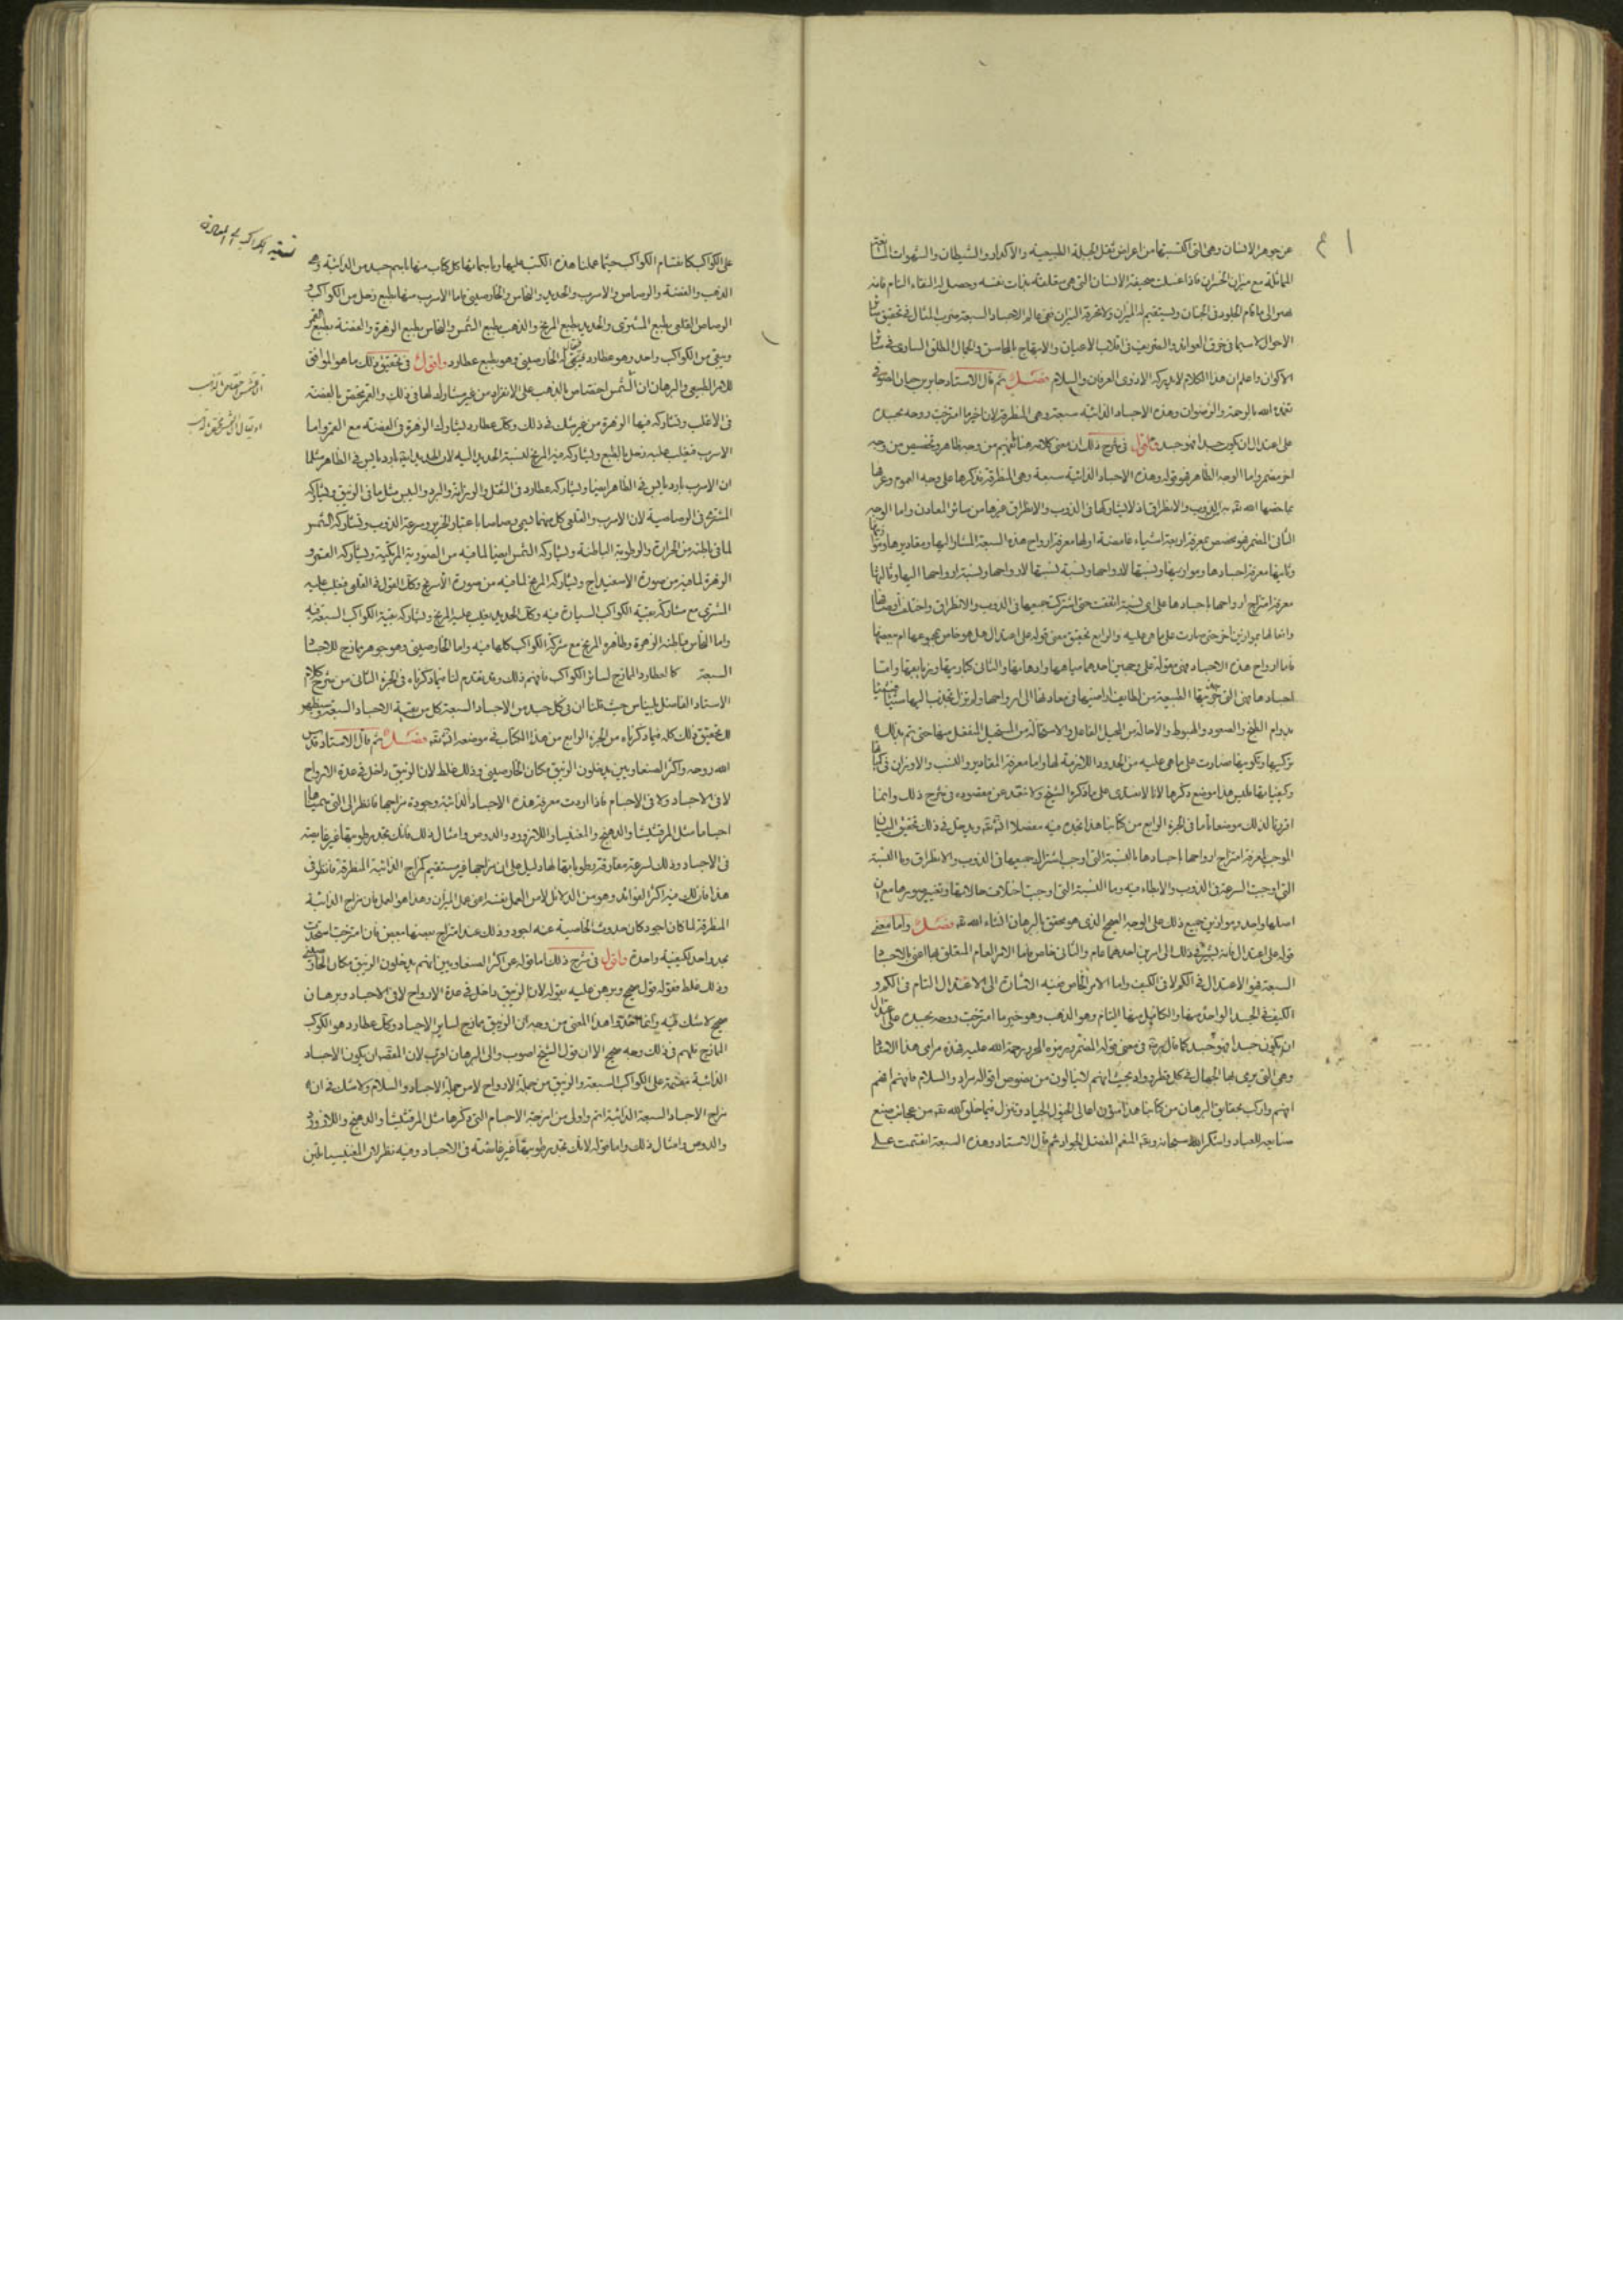 عن جوهر الانسان وهى التى اكتسبتها من اعراض ثقل الجبلة الطبيعية والاكدار والشيطان والشهوات
المائلة مع ميزان الخسران فاذا غسلت صحيفة الانسان التى هى متعلقة بذات نفسه وحصل له النقاء التام فانه
الى مقام الخلود فى الجنان ويستقيم له الميزان ولا نخرقه الميزان ففى عالم الاجساد السبعة مضرب المثال فى تحقيق
الاحوال لا سيما فى خرق العوائد والتصريف فى انقلاب الاعيان والابتهاج بالمحاسن والجمال المطلق السارى فى
الاكوان واعلم ان هذا الكلام لا يدركه الا ذوى العرفان والسلام فصل ثم قال الاستاد جابر بن حيان الصوفى
تغمده الله بالرحمة والرضوان وهذه الاجساد الذائبة سبعة وهى المنطرقة لان اخير ما امتزجت روحه بجسده
على اعتدال ان يكون جسدا فهو جسد واقول فى شرح ذلك ان معنى كلامه هنا يفهم من وجه ظاهر وتخصيص من وجه
اخر مضمر واما الوجه الظاهر فهو قوله وهذه الاجساد الذائبة سبعة وهى المنطرقة فذكرها على وجه العموم وعرفها
بما خصها الله تعه به الذوب والانطراق اذ لا يشاركها فى الذوب والانطراق غيرها من سائر المعادن واما الوجه
الثانى المضمر فهو تخصيص بمعرفة اربعة اشياء غامضة اولها معرفة ارواح هذه السبعة المشار اليها ومقاديرها
وثانيها معرفة اجسادها وموازينها ونسبتها لارواحها ونسبة نسبتها لارواحها ونسبة ارواحها اليها وثالثها
معرفة امتزاج ارواحها باجسادها على اى نسبة اتفقت حتى اشتركت جميعها فى الذوب والانطراق واختلفت اوصافها
وافعالها بموازين اخر حتى صارت على ما هى عليه والرابع تحقيق معنى قوله على اعتدال هل هو خاص بمجموعها ام ببعضها
فاما ارواح هذه الاجساد فهى مقولة على وجهين احدهما مياهها وادهانها والثانى كباريتها وزيابقها واما
اجسادها فهى التى الطبيعة من لطايف اراضيها فى معادنها الى ارواحها ولم تزل تجذب اليها شيئا فشيئا
بدوام الطبخ والصعود والهبوط والاحالة من المحيل الفاعل والاستحالة من المستحيل المنفعل منها حتى تم بذلك
تركيبها وتكوينها فصارت على ما هى عليه من الحدود اللازمة لها واما معرفة المقادير والنسب والاوزان فى
وكيفياتها فليس هذا موضع ذكرها لانا لا نتعدى على ما ذكره الشيخ ولا نقعد عن مقصوده فى شرح ذلك وانما
افردنا لذلك موضعا تاما فى الجزء الرابع من كتابنا هذا تجده فيه مفصلا ويدخل فى ذلك تحقيق البيان
الموجب لمعرفة امتزاج ارواحها باجسادها بالنسبة التى اوجب اشتراك جميعها فى الذوب والانطراق وما النسبة
التى اوجبت السرعة فى الذوب والابطاء فيه وما النسبة التى اوجبت اختلاف حالاتها وتغيير صورها مع ان
اصلها واحد وموازين جميع ذلك على الوجه الصحيح الذى هو محقق بالبرهان انشاء الله تعه فصل واما معنى
قوله على اعتدال فانه يشير فى ذلك الى امرين احدهما عام والثانى خاص فاما الامر العام المتعلق بها اعنى بالاجساد
السبعة فهو الاعتدال فى الكم لا فى الكيف واما الامر الخاص ففيه الاشارة الى الاعتدال التام فى الكم و
الكيف فى الجسد الواحد منها والكامل منها التام وهو الذهب وهو خير ما امتزجت روحه بجسده على اعتدال
ان يكون جسدا فهو جسد كما قال فى معنى قوله المضمر رحمة الله عليه فهذه مرامى هذا الاستاد
وهى التى يرمى بها الجهال فى كل قطر وواد بحيث انهم لا ينالون من نصوص اقواله مراد والسلام فافهم افهم
افهم واركب بحقايق البرهان من كتابنا هذا الجياد وتنزل فيما خلق الله تعه من عجائب صنع
صنايعه للعباد واشكر الله سبحانه وتعه المنعم المفضل الجواد ثم قال الاستاد وهذه السبعة انقسمت على
قسمة الكواكب الى المعادن
على الكواكب كانقسام الكواكب حيثما عملنا هذه الكتب عليها وباسمائها كل كتاب منها باسم جسد من الذائبة وهى
الذهب والفضة والرصاص والاسرب والحديد والنحاس والخارصينى فاما الاسرب منها بطبع زحل من الكواكب و
الرصاص القلعى بطبع المشترى والحديد بطبع المريخ والذهب بطبع الشمس والنحاس بطبع الزهرة والفضة بطبع القمر
وبقى من الكواكب واحد وهو عطارد فيبقى له الخارصينى وهو بطبع عطارد واقول فى تحقيق ذلك ما هو الموافق
للامر الطبيعى والبرهان ان للشمس اختصاص بالذهب على الانفراد من غير مشارك لها فى ذلك والقمر يختص بالفضة
فى الاغلب وتشاركه فيها الزهرة من غير شك فى ذلك وكك عطارد يشارك الزهرة فى الفضة مع القمر واما
الاسرب فيغلب عليه زحل بالطبع ويشاركه فيه المريخ لنسبة الحديد اليه لان الحديد ايضا بارد يابس فى الظاهر مثلما
ان الاسرب بارد يابس فى الظاهر ايضا ويشاركه عطارد فى الثقل والرزانة والبرد واليبس مثل ما فى الزئبق ويشاركه
المشترى فى الرصاصية لان الاسرب والقلعى كل منهما يسمى رصاصا باعتبار الخرير وسرعة الذوب وتشاركه الشمس
لما فى باطنه من الحرارة والرطوبة الباطنة ويشاركه الشمس ايضا لما فيه من الصورية المركبة ويشاركه القمر و
الزهرة لما فيه من صورة الاسفيداج ويشاركه المريخ لما فيه من صورة الاسرنج وكك القول فى القلعى فيغلب عليه
المشترى مع مشاركة بقية الكواكب السيارة فيه وكك الحديد يغلب عليه المريخ ويشاركه بقية الكواكب السبعة فيه
واما النحاس فباطنه الزهرة وظاهره المريخ مع شركة الكواكب كلها فيه واما الخارصينى وهو جوهر ممازج للاجساد
السبعة كما لعطارد الممازج لسائر الكواكب فافهم ذلك وقد تقدم لنا فيما ذكرناه فى الجزء الثانى من شرح كلام
الاستاد الفاضل بليناس حيث قلنا ان فى كل جسد من الاجساد السبعة كل من بقية الاجساد السبعة وسيظهر
لك تحقيق ذلك كله فيما ذكرناه من الجزء الرابع من هذا الكتاب فى موضعه فصل ثم قال الاستاد قدس
الله روحه واكثر الصنعاويين يدخلون الزئبق مكان الخارصينى وذلك غلط لان الزئبق داخل فى عدة الارواح
لا فى الاجساد ولا فى الاجسام فاذا اردت معرفة هذه الاجساد الذائبة وجودة مزاجها فانظر الى التى سميناها
اجساما مثل المرقشيثا والدهنج والمغنيسيا واللازورد والدوص وامثال ذلك فانك تجد رطوبتها غير غايصة
فى الاجساد وذلك لسرعة مفارقة رطوباتها لها دليل على ان مزاجها غير مستقيم كمزاج الذائبة المنطرقة فانظر فى
هذا فان لك فيه اكثر الفوائد وهو من الدلائل لامر العمل بنفسه اعنى عمل الميزان وهذا هو العمل فان مزاج الذائبة
المنطرقة لما كان اجود كان حدوث الخاصية عنه اجود وذلك عند امتزاج بعضها ببعض فان امتزجت
بحد واحد لكيفية واحدة واقول فى شرح ذلك اما قوله عن اكثر الصنعاويين انهم يدخلون الزئبق مكان الخارصينى
وذلك غلط فقوله قول صحيح وبرهن عليه بقوله لان الزئبق داخل فى عدة الارواح لا فى الاجساد وبرهان
صحيح لا شك فيه وانما هذا المعنى من وجه ان الزئبق ممازج لساير الاجساد وكك عطارد هو الكوكب
الممازج فلهم فى ذلك وجه صحيح الا ان قول الشيخ اصوب والى البرهان اقرب لان القصد ان يكون الاجساد
الذائبة منقسمة على الكواكب السبعة والزئبق من جملة الارواح لا من جملة الاجساد والسلام ولا شك فى ان
مزاج الاجساد السبعة الذائبة اتم واولى من امزجة الاجسام التى ذكرها مثل المرقشيثا والدهنج واللازورد
والدوص وامثال ذلك واما قوله لانك تجد رطوبتها غير غائصة فى الاجساد وفيه نظر لان المغنيسيا